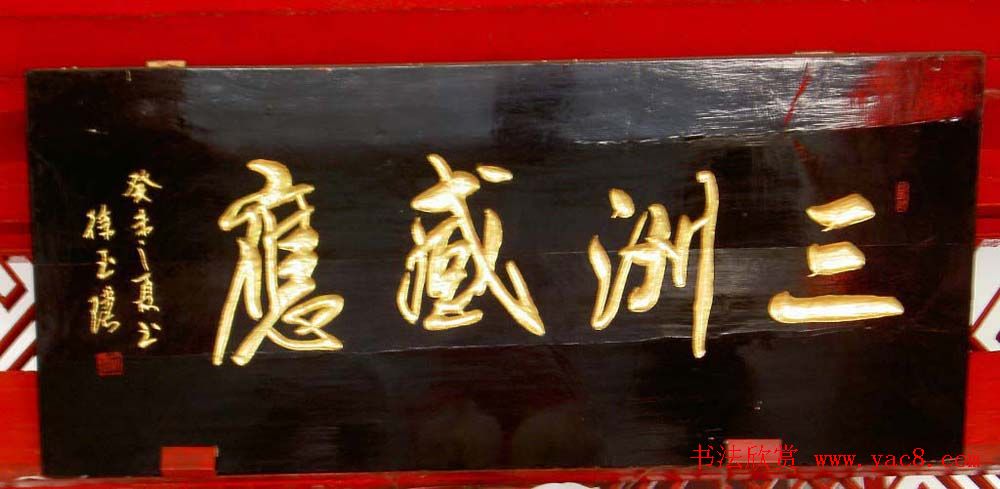 三洲感應
癸未之夏書
徐玉
书法欣赏 www.yac8.com